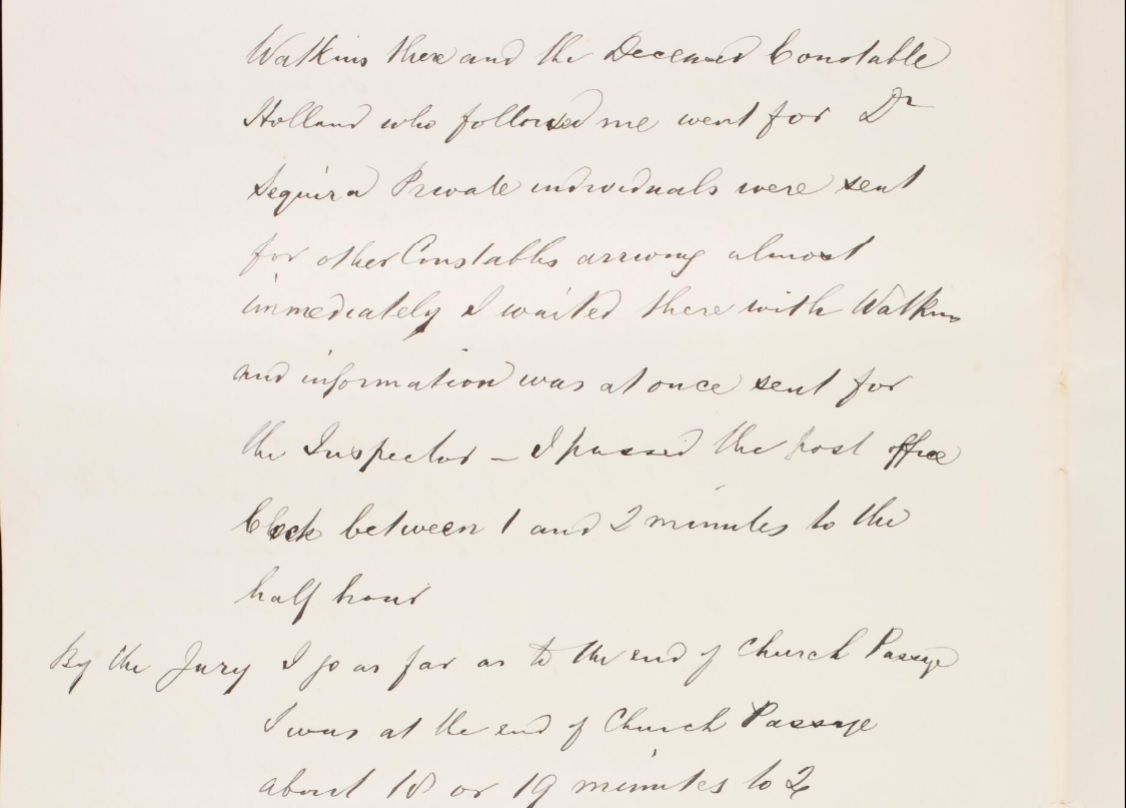 Watkins there and the Deceased Constable
Holland who followed me went for Dr
Sequira Private individuals were sent
for other Constables arriving almost
immediately I waited there with Watkins
and information was at once sent for
the Inspector – I passed the post office
Clock between 1 and 2 minutes to the
half hour
By the Jury I go as far as to the end of Church Passage
I was at the end of Church Passage
about 18 or 19 minutes to 2